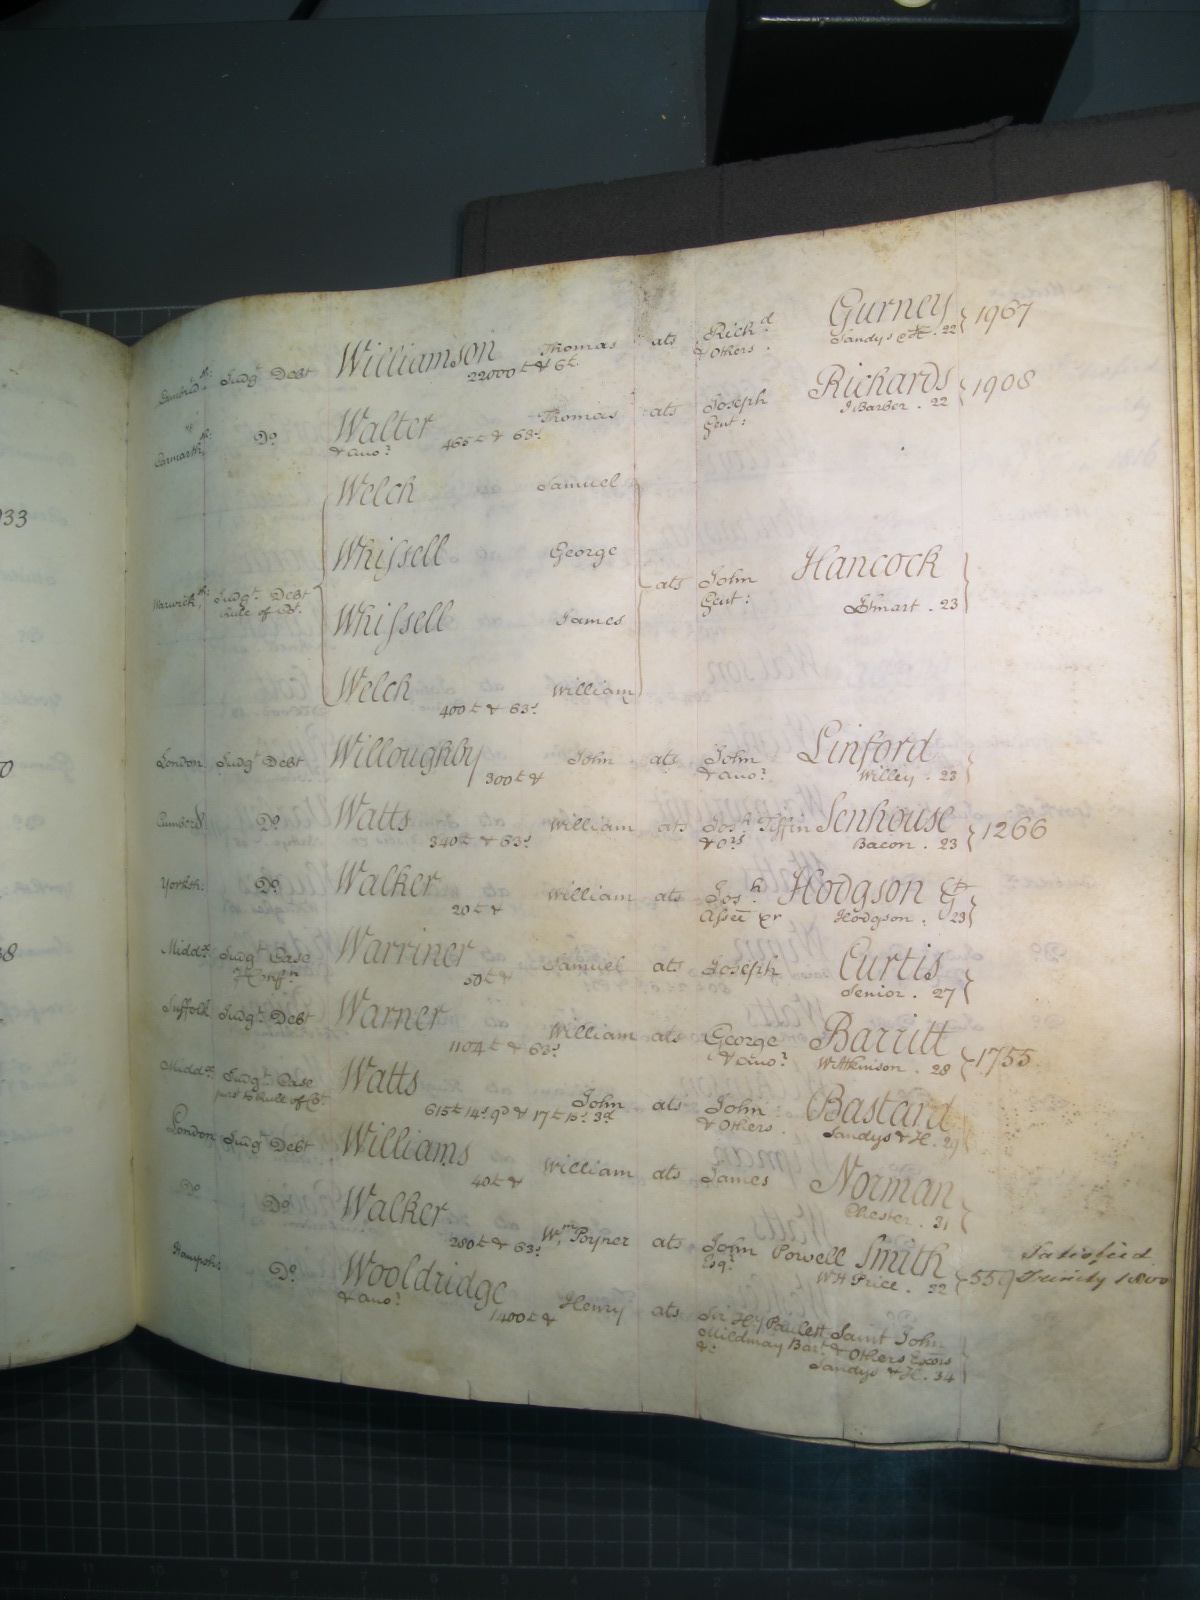 033
0
38
Cambridsh: Judgt. Debt Williamson Thomas ats Richd. Gurney } 1967
22000£ & 6£. & Others. Sandys & H. 22
Carmarthsh: Do. Walter Thomas ats Joseph Richards } 1908
& ano: 465£ & 63s Gent: J Barber. 22
Welch Samuel
Whissell George
Warwicksh: Judgt. Debt ats John Hancock }
Rule of Ct. Gent: Smart. 23
Whissell James
Welch William
400£ & 63s
London Judgt. Debt Willoughby John ats John Linford }
300£ & & ano: Willey. 23
Cumberld Do. Watts William ats Josh. Tiffin Senhouse } 1266
340£ & 63s & ors Bacon. 23
Yorksh: Do. Walker William ats Josh. Hodgson Gt }
20£ & Assee &r Hodgson. 23
Middx. Judgt. Case Warriner Samuel ats Joseph Curtis }
Confn 50£ & Senior. 27
Suffolk Judgt. Debt Warner William ats George Barritt } 1755
1104£ & 63s & ano: W Atkinson. 28
Middx. Judgt. Case Watts John ats John Bastard
purs to Rule of Ct. 615£ 14s. 9d & 17£ 15s. 3d & Others. Sandys & H. 29
London Judgt. Debt Williams William ats James Norman }
40£ & Chester. 31
Do. Do. Walker Wm. Poyner ats John Powell Smith } 559 Satisfied
280£ & 63s Esqr. W H Price. 32 Trinity 1800
Hampsh: Do. Wooldridge Henry ats Sir Hy Paulett Saint John
& ano: 1400£ & Mildmay Bart. & Others Exors
&c Sandys & H. 34